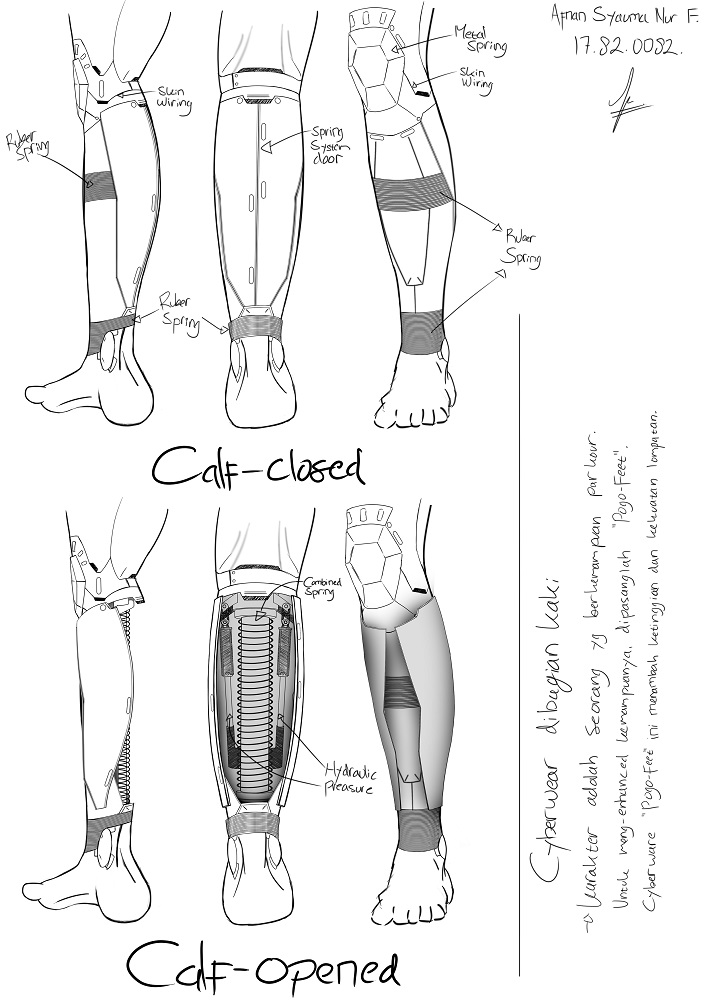 Afnan Syauma Nur F.
17.82.0082.
Metal
Spring
Skin
Wiring
Skin
Wiring
Ruber
Spring
Spring
System
door
Ruber
Spring
Ruber
Spring
Calf-closed
Combined
Spring
Hydraulic
pleasure
Calf-opened
Cyberwear dibagian kaki
→ karakter adalah seorang yg berkemampuan parkour.
Untuk meng-enhanced kemampuanya, dipasanglah "Pogo-Feet".
Cyberware "Pogo-Feet" ini menambah ketinggian dan kekuatan lompatan.